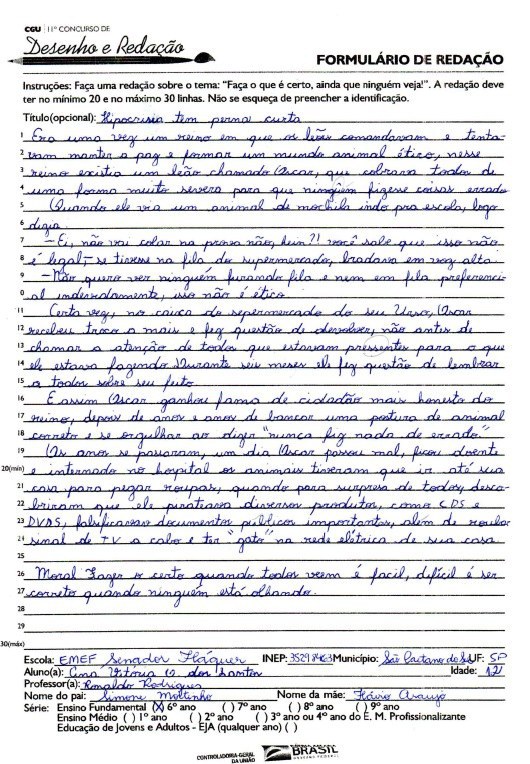 CGU | 11º CONCURSO DE
Desenho e Redação
FORMULÁRIO DE REDAÇÃO
Instruções: Faça uma redação sobre o tema: "Faça o que é certo, ainda que ninguém veja!". A redação deve
ter no mínimo 20 e no máximo 30 linhas. Não se esqueça de preencher a identificação.
Título(opcional): Hipocrisia tem perna curta
1 Era uma vez um reino em que os leões comandavam e tenta-
2 vam manter a paz e formar um mundo animal ético, nesse
3 reino existia um leão chamado Oscar, que cobrava todos de
4 uma forma muito severa para que ninguém fizesse coisas errada
5 Quando ele via um animal de mochila indo pra escola, logo
6 dizia:
7 – Ei, não vai colar na prova não, hein?! você sabe que isso não
8 é legal; – se tivesse na fila do supermercado, bradava em voz alta:
9 – Não quero ver ninguém furando fila e nem em fila preferenci
10 al indevidamente, isso não é ético.
11 Certa vez, no caixa do supermercado do seu Urso, Oscar
12 recebeu troco a mais e fez questão de devolver, não antes de
13 chamar a atenção de todos que estavam pressentes para o que
14 ele estava fazendo. Durante seis meses ele fez questão de lembrar
15 a todos sobre seu feito.
16 E assim Oscar ganhou fama de cidadão mais honesto do
17 reino, depois de anos e anos de bancar uma postura de animal
18 correto e se orgulhar ao dizer "nunca fiz nada de errado."
19 Os anos se passaram, um dia Oscar passou mal, ficou doente
20(min) e internado no hospital os animais tiveram que ir até sua
21 casa para pegar roupas, quando para surpresa de todos, desco-
22 briram que ele pirateava diversos produtos, como CDS e
23 DVDS, falsificavam documentos públicos importantes, além de roubar
24 sinal de TV a cabo e ter "gato" na rede elétrica de sua casa.
25
26 Moral: Fazer o certo quando todos veem é facil, difícil é ser
27 correto quando ninguém está olhando.
28
29
30(máx)
Escola: EMEF Senador Fláquer INEP: Município: São Caetano do Sul UF: SP
Aluno(a): Ana Vitória O. dos Santos Idade: 12
Professor(a): Ronaldo Rodrigues
Nome do pai: Simone Moitinho Nome da mãe: Flávio Araujo
Série: Ensino Fundamental (X) 6º ano ( ) 7º ano ( ) 8º ano ( ) 9º ano
Ensino Médio ( ) 1º ano ( ) 2º ano ( ) 3º ano ou 4º ano do E. M. Profissionalizante
Educação de Jovens e Adultos - EJA (qualquer ano) ( )
CONTROLADORIA-GERAL
DA UNIÃO
BRASIL
GOVERNO FEDERAL